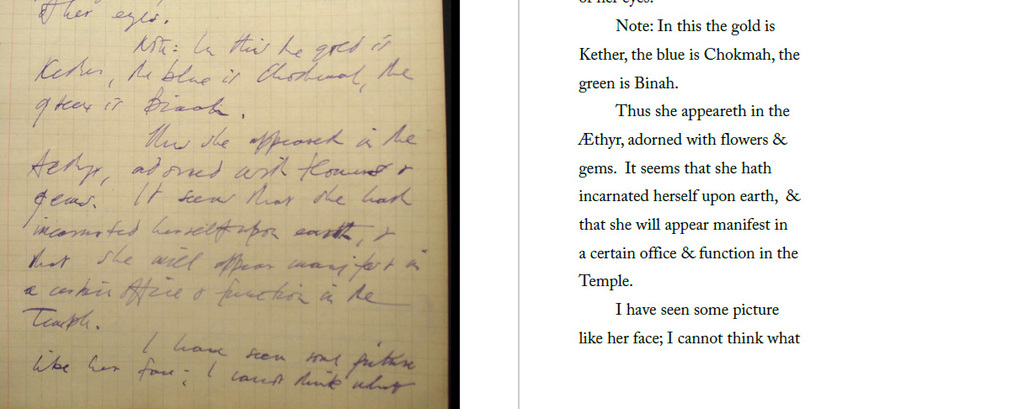 of her eyes.
Note: In this the gold is
Kether, the blue is Chokmah, the
green is Binah.
Thus she appeareth in the
Aethyr, adorned with flowers &
gems. It seems that she hath
incarnated herself upon earth, &
that she will appear manifest in
a certain office & function in the
Temple.
I have seen some picture
like her face; I cannot think what
of her eyes.
Note: In this the gold is
Kether, the blue is Chokmah, the
green is Binah.
Thus she appeareth in the
Æthyr, adorned with flowers &
gems. It seems that she hath
incarnated herself upon earth, &
that she will appear manifest in
a certain office & function in the
Temple.
I have seen some picture
like her face; I cannot think what